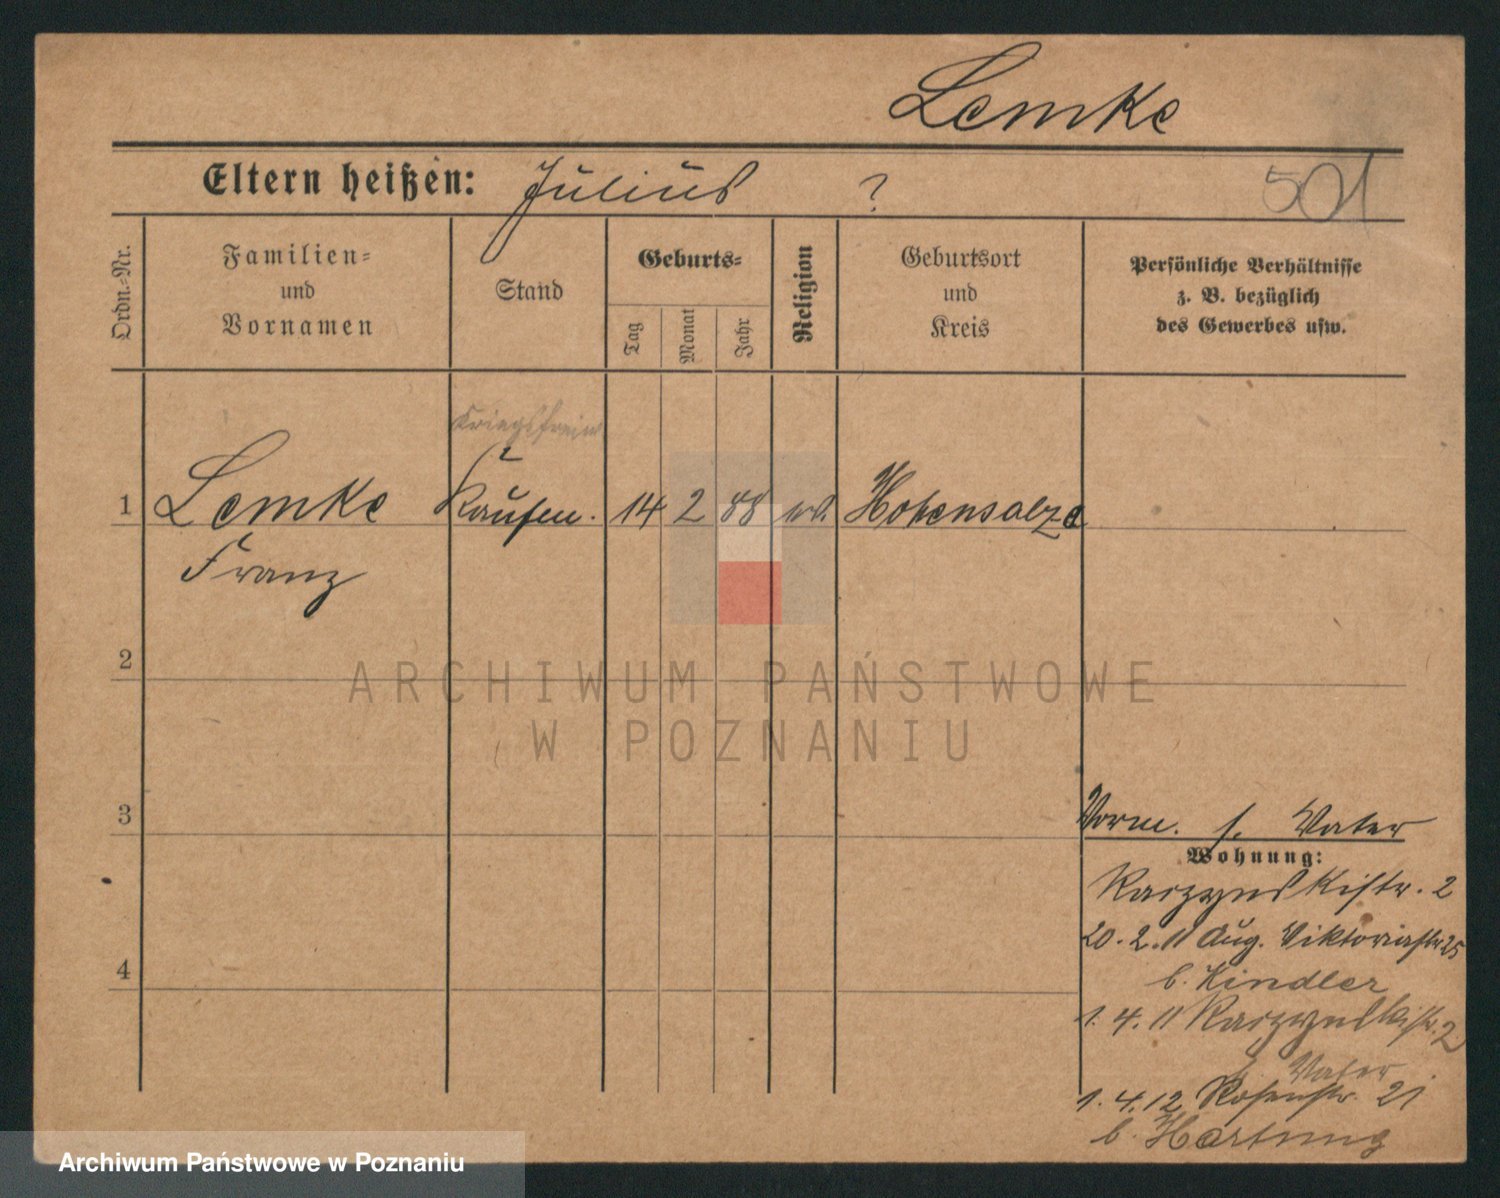 Lemke
Eltern heißen: Julius ?
501
Ordn.-Nr.
Familien=
und
Vornamen
Stand
Geburts=
Tag
Monat
Jahr
Religion
Geburtsort
und
Kreis
Persönliche Verhältnisse
z. B. bezüglich
des Gewerbes usw.
1 Lemke Kaufm. 14 2 88 Hohensalza
Franz
2
ARCHIWUM PAŃSTWOWE
W POZNANIU
3
Vorm. s. Vater
Wohnung:
Raczynskistr. 2
20. 2. 11 Aug. Viktoriastr 25
4
b. Kindler
1. 4. 11 Raczynskistr. 2
Vater
1. 4. 12 Rosenstr. 21
b. Hartung
Archiwum Państwowe w Poznaniu